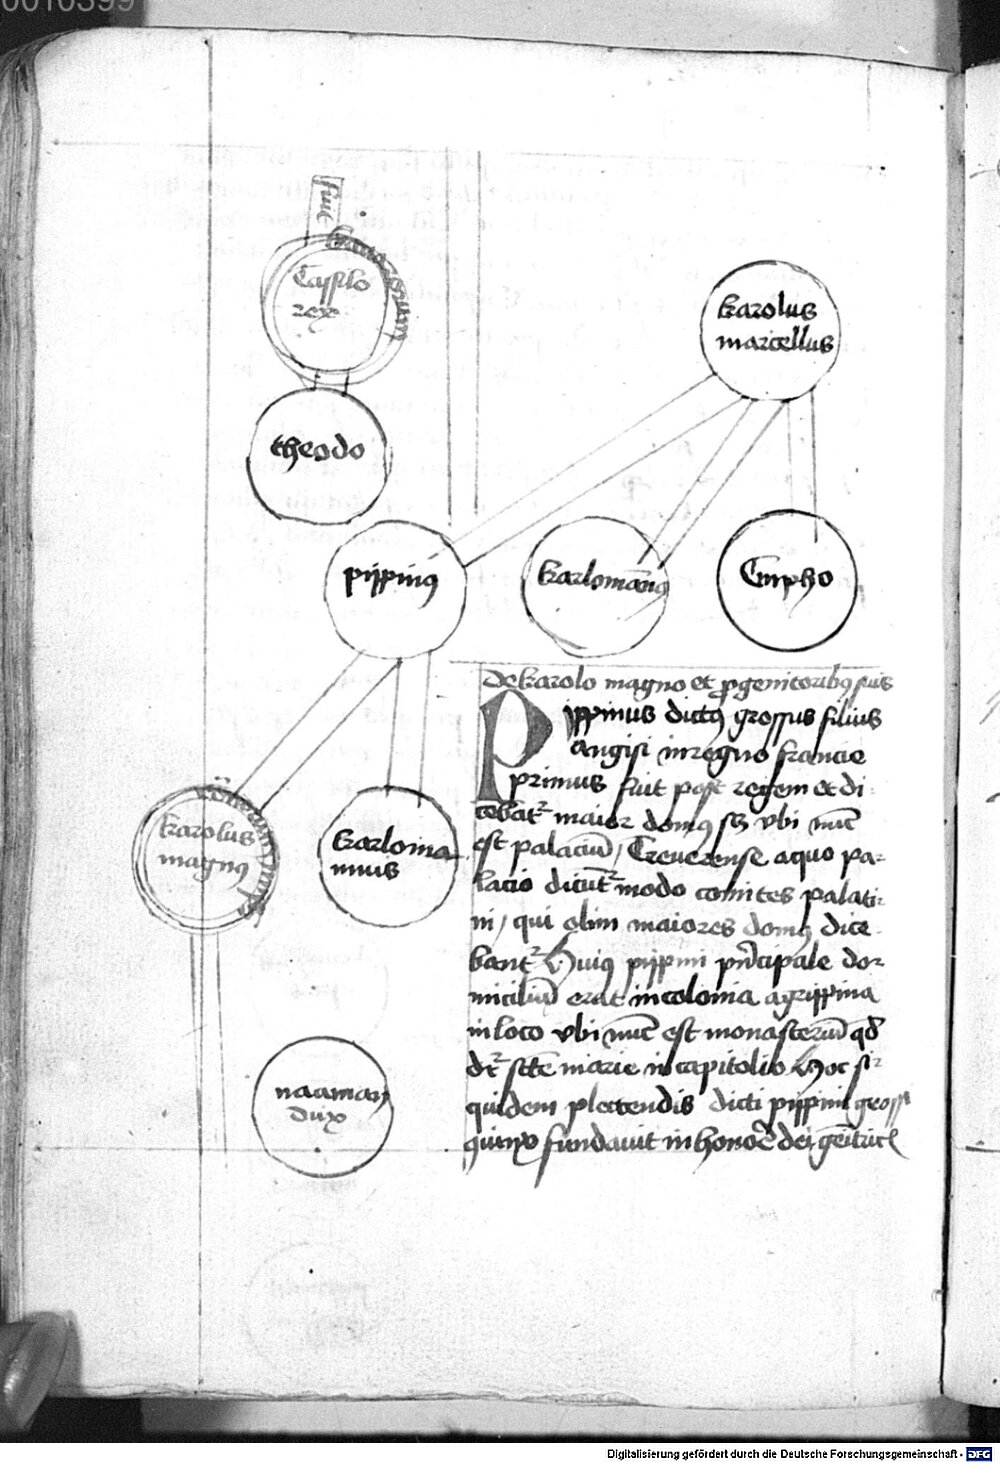 0010399
Tassilo
rex
theodo
karolus
martellus
pippinus
karlomanus
Gripho
karolus
magnus
karloma
nnus
naaman
dux
De karolo magno et progenitoribus suis
Pippinus dictus grossus filius
Angisi in regno francie
primus fuit post regem et di
cebatur maior domus scilicet ubi nunc
est palacium Treuerense a quo pa-
lacio dicuntur modo comites palati-
ni, qui olim maiores domus dice-
bantur Huius pippini principale do-
micilium erat in colonia agrippina
in loco ubi nunc est monasterium quod
dicitur sancte marie in capitolio Hoc si-
quidem plectendis dicti pippini grossi
fundauit in honore dei genitricis
Digitalisierung gefördert durch die Deutsche Forschungsgemeinschaft - DFG